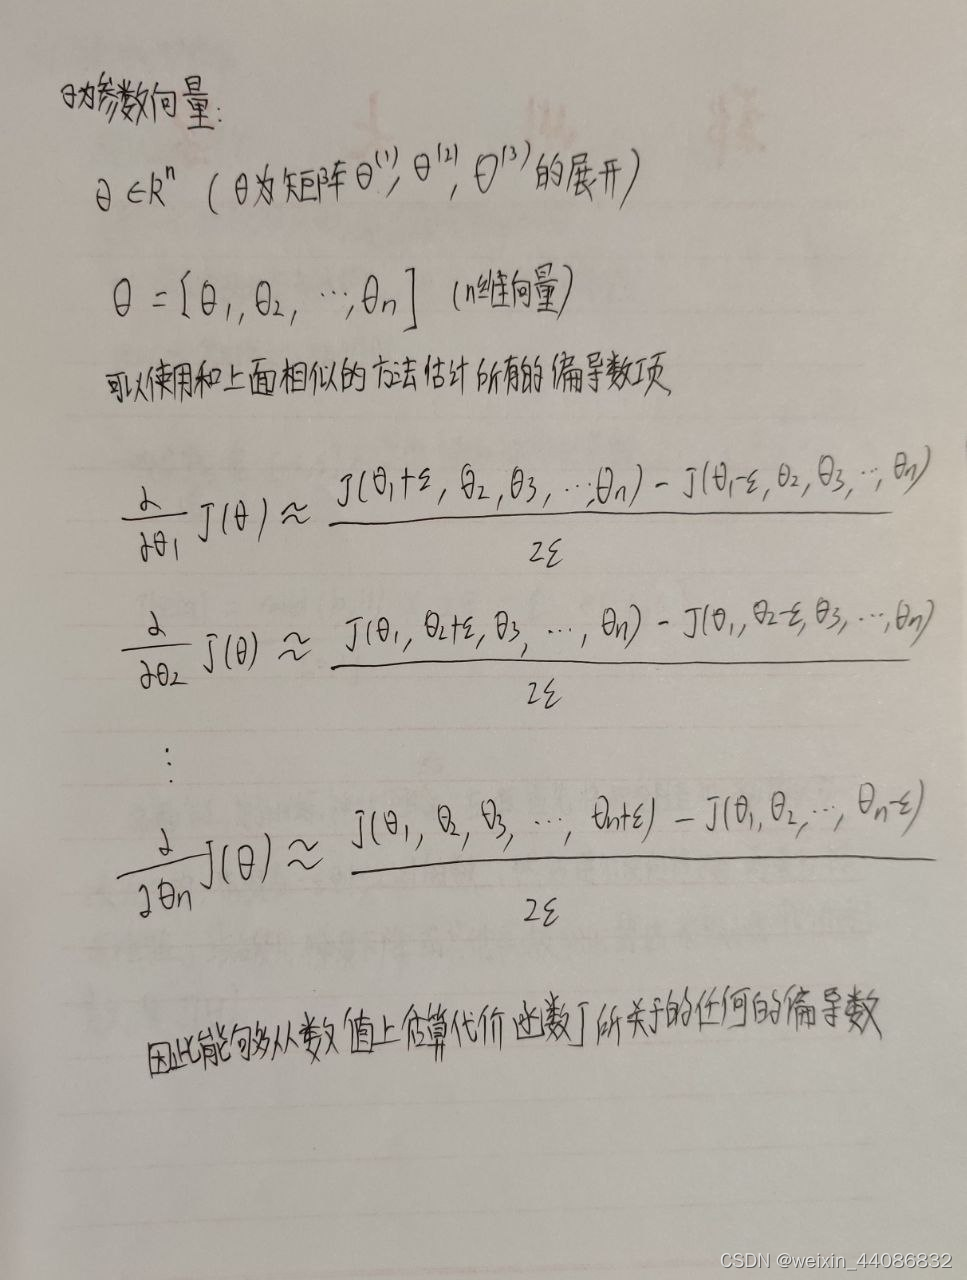 θ为参数向量:
θ∈Rⁿ (θ为矩阵θ⁽¹⁾, θ⁽²⁾, θ⁽³⁾的展开)
θ = [θ₁, θ₂, …, θn] (n维向量)
可以使用和上面相似的方法估计所有的偏导数项
∂/∂θ₁ J(θ) ≈ (J(θ₁+ε, θ₂, θ₃, …, θn) - J(θ₁-ε, θ₂, θ₃, …, θn)) / 2ε
∂/∂θ₂ J(θ) ≈ (J(θ₁, θ₂+ε, θ₃, …, θn) - J(θ₁, θ₂-ε, θ₃, …, θn)) / 2ε
⋮
∂/∂θn J(θ) ≈ (J(θ₁, θ₂, θ₃, …, θn+ε) - J(θ₁, θ₂, …, θn-ε)) / 2ε
因此能够从数值上估算代价函数J所关于的任何的偏导数
CSDN @weixin_44086832